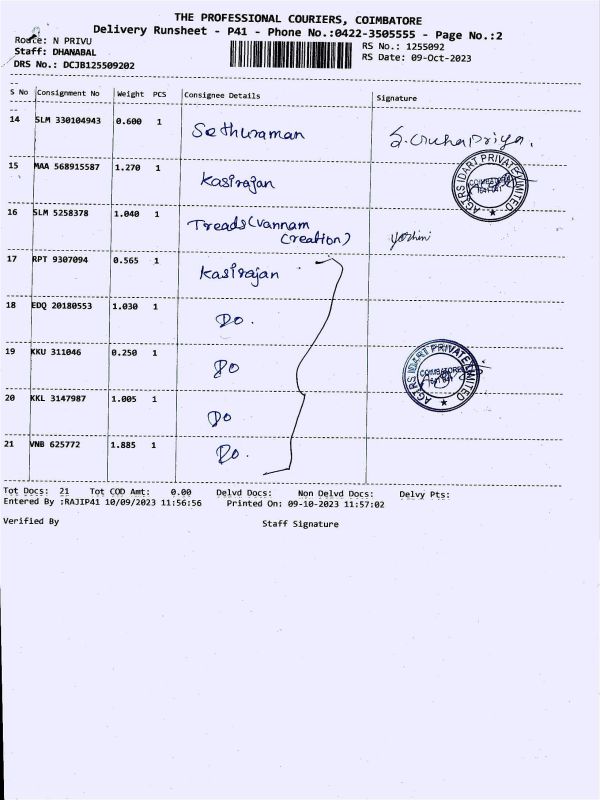 THE PROFESSIONAL COURIERS, COIMBATORE
Delivery Runsheet - P41 - Phone No.:0422-3505555 - Page No.:2
Route: N PRIVU
RS No.: 1255092
Staff: DHANABAL
RS Date: 09-Oct-2023
DRS No.: DCJB125509202
S No Consignment No Weight PCS Consignee Details Signature
14 SLM 330104943 0.600 1 Sethuraman
15 MAA 568915587 1.270 1 Kasirajan
AGTRS IDART PRIVATE LIMITED
COIMBATORE
641 041
16 SLM 5258378 1.040 1 Treads (Vannam
Creation)
17 RPT 9307094 0.565 1 Kasirajan
18 EDQ 20180553 1.030 1 Do.
19 KKU 311046 0.250 1 Do
AGTRS IDART PRIVATE LIMITED
COIMBATORE
641 041
20 KKL 3147987 1.005 1 Do
21 VNB 625772 1.885 1 Do.
Tot Docs: 21 Tot COD Amt: 0.00 Delvd Docs: Non Delvd Docs: Delvy Pts:
Entered By :RAJIP41 10/09/2023 11:56:56 Printed On: 09-10-2023 11:57:02
Verified By Staff Signature